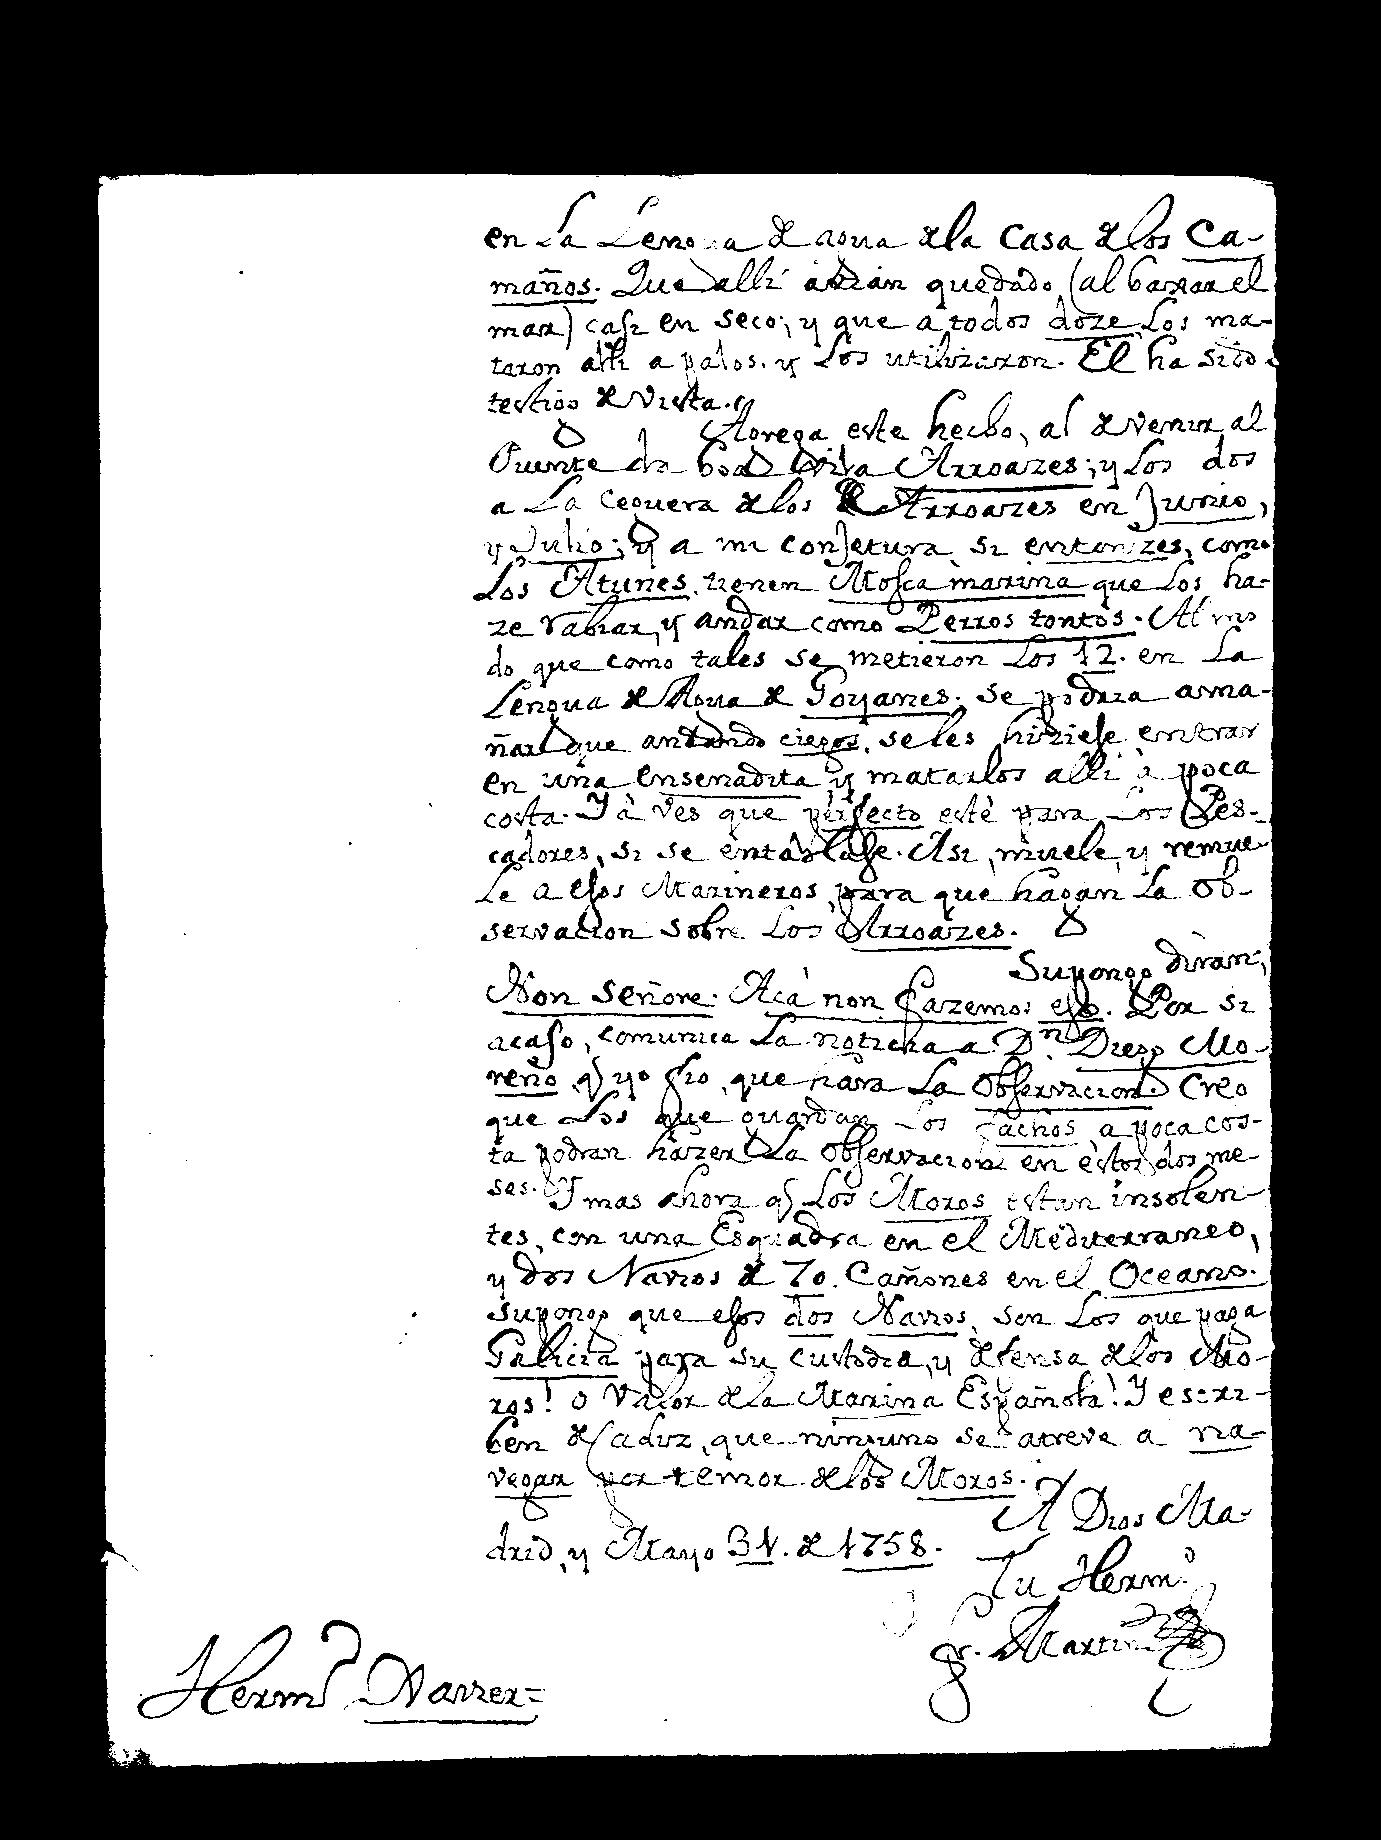 en La Lengua de agua de la Casa de los Ca-
maños. Que alli avian quedado (al baxar el
mar) casi en seco; y que a todos doze Los ma-
taron alli a palos. y Los utilizaron. El ha sido
testigo de vista.
Agrega este hecho, al de venir al
Puente da Arroazes; y Los dos
a La ceguera de los Arroazes en Junio,
y Julio; y a mi conjetura si entonzes, como
Los Atunes, tienen Mosca marina que Los ha-
ze rabiar, y andar como Perros tontos. Al mo
do que como tales se metieron Los 12. en La
Lengua de Agua de Goyanes. se podria ama-
ñar que andando ciegos, se les hiziese entrar
en uña ensenadita y matarlos alli à poca
costa. Yà ves que perfecto estè para Los Pes-
cadores, si se entablase. Asi, muele, y remue-
Le a esos Marineros, para que hagan La Ob-
servacion sobre Los Arroazes.
Supongo diran;
Non Señore. Acà non fazemos eso. Por si
acaso, comunica La noticia a Dn. Diego Mo-
reño, q yo fio, que harà La Observacion. Creo
que Los que guardan Los fachos, a poca cos-
ta podran hazer La Observacion en estos dos me-
ses. Y mas ahora q Los Moros estan insolen-
tes, con una Esquadra en el Mediterraneo,
y dos Navios de 70. Cañones en el Oceano.
Supongo que esos dos Navios, son Los que paga
Galicia para su custodia, y defensa de los Mo-
ros! o Valor de la Marina Española! Y escri-
ben de Cadiz, que ninguno se atreve a na-
vegar por temor de los Moros.
A Dios Ma-
drid, y Mayo 31. de 1758.
Tu Hermo.
Fr. Martin
Hermo Xavier=